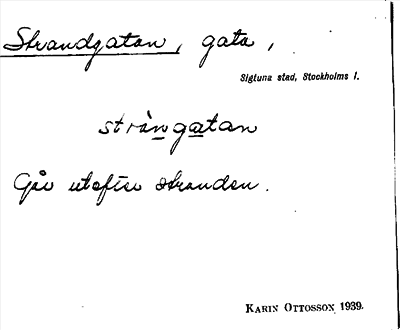 Strandgatan, gata,
Sigtuna stad, Stockholms l.
stràngatan
Går utefter stranden.
KARIN OTTOSSON 1939.